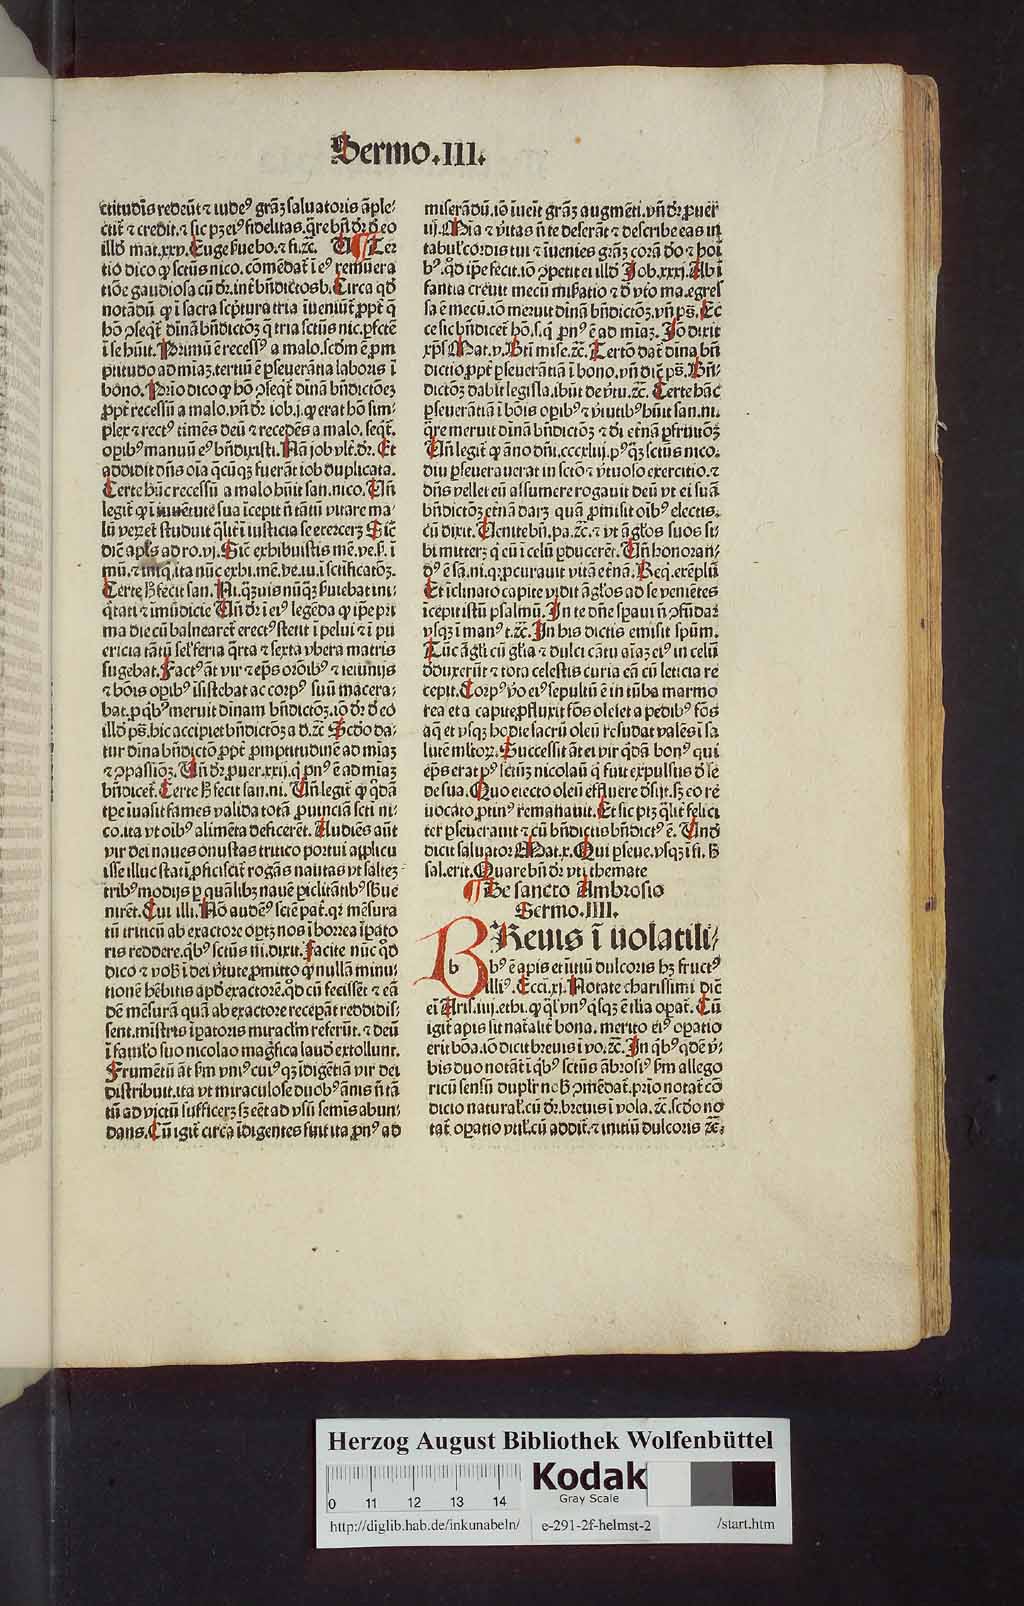 Sermo.III.
ctitudīs redeūt ⁊ iudeꝰ grāꝫ saluatoris āple⸗
ctit̄ ⁊ credit.⁊ sic pꝫ eiꝰ fidelitas.q̄re bn̄ dr̄ ð eo
illđ mat.xxv. Euge ſue bo.⁊ fi.ꝛc̄. Ter
tio dico ꝙ sctūs nico. cōmēdat̄ ī eꝰ remuera
tiōe gaudiosa cū dr̄.int̄ bn̄dictos b. Circa qđ
notādū ꝙ ī sacra scp̄tura tria īueniūt̄ ꝓpt̄ q̄
hō ꝯseqt̄ dīnā bn̄dictōꝫ q̄ tria sctūs nic.ꝑfctē
ī se hūit. Primū ē recessꝰ a malo.scđm ē ꝓm
ptitudo ad miaꝫ.tertiū ē ꝑseuerātia laboris ī
bono. Prīo dico ꝙ hō ꝯseqt̄ dīnā bn̄dictōeꝫ
ꝓpt̄ recessū a malo.vn̄ dr̄ iob.j.ꝙ erat hō sim⸗
plex ⁊ rectꝰ timēs deū ⁊ recedēs a malo. seqt̄.
oꝑibꝰ manuū eꝰ bn̄dixisti. Nā iob vlt̄.dr̄. Et
addidit dn̄s oīa q̄cūqꝫ fuerāt iob duplicata.
Certe hūc recessū a malo hūit san.nico. Un̄
legit̄ ꝙ ī iuuētute sua īcepit n̄ tātū vitare ma⸗
lū veꝝ et̄ studuit qlīt̄ ī iusticia se exercerꝫ Sic̄
dic̄ apl̄s ad ro.vj. Sic̄ exhibuistis mē.ve.ẜ. ī
mū.⁊ iniq̄.ita nūc exhi.mē.ve.iu.ī sctificatōꝫ.
Certe ꝉ fecit san. Ni.qꝫuis nūqꝫ ſuiebat ini⸗
q̄tati ⁊ īmūdicie Un̄ dr̄ ī eiꝰ legēda ꝙ ip̄e pri
ma die cū balnearet̄ erectꝰ stetit ī pelui ⁊ ī pu
ericia tātū sel̄ feria q̄rta ⁊ sexta vbera matris
sugebat. Factꝰ āt vir ⁊ ep̄s orōibꝰ ⁊ ieiunijs
⁊ bōis oꝑibꝰ īsistebat ac corpꝰ suū macera⸗
bat.ꝑ qbꝰ meruit dinam bn̄dictōꝫ.iō dr̄ ð eo
illđ ps̄.hic accipiet bn̄dictōꝫ a d.ꝛc̄ Scđo da⸗
tur dīna bn̄dictō ꝓpt̄ ꝓmptitudinē ad miaꝫ
⁊ ꝯpassiōꝫ. Un̄ dr̄.ꝓuer.xxij.q̄ pnꝰ ē ad mīaꝫ
bn̄dicet̄. Certe ꝉ fecit san.ni. Un̄ legit̄ ꝙ qdā
tꝑe īuasit fames valida totā ꝓuinciā scti ni⸗
co.ita vt oībꝰ alimēta deficerēt. Audiēs aūt
vir dei naues onustas tritico portui aꝓlicu
isse illuc statī ꝓficiscit̄ rogās nautas vt saltez⸗
tribꝰ modijs ꝑ quālibꝫ nauē ꝑiclitātibꝰ ꝉueé
nirēt. Cui illi. Nō audeꝰ sctē pat̄.qꝛ mēsura
tū triticū ab exactore optꝫ nos ī horrea īꝑato
ris reddere.qbꝰ sctūs nī.dixit. Facite nūc qđ
dico ⁊ vob ī dei v̄tute ꝓmitto ꝙ nullā minu⸗
tionē hēbitis apđ exactorē.qđ cū fecissēt ⁊ eā
dē mēsurā quā ab exactore recepāt reddidis⸗
sent.mīstris īꝑatoris miraclm̄ referūt.⁊ deū
ī famlo suo nicolao magfica laude extollunt.
Frumētū āt ẜm vniꝰ cuiꝰqꝫ īdigētiā vir dei
distribuit.ita vt miraculose duobꝰ ānis n̄ tā
tū ad victū sufficerꝫ sꝫ eēt ad vsū semīs abun⸗
dans. Cū igit̄ circa īdigentes fuit ita ꝓnꝰ ad
miserādū.iō īueīt grāꝫ augmēti.vn̄ dr̄.ꝓuer̄
iij. Mīa ⁊ v̄itas n̄ te deserāt ⁊ describe eas in
tabul̄ cordis tui ⁊ īuenies grāꝫ corā đo ⁊ hoī
bꝰ.qđ ip̄e fecit.iō ꝯpetit ei illđ Job.xxxj. Ab ī
fantia creuit mecū mīsatio ⁊ đ vt̄o ma.egres
sa ē mecū.iō meruit dīnā bn̄dictōꝫ.vn̄ ps̄. Ec
ce sic bn̄dicet̄ hō.s.q̄ pnꝰ ē ad mīaꝫ. Jō dixit
xp̄s Mat.v. Btī mise.ꝛc̄. Tertō dat̄ dīna bn̄
dictio ꝓpt̄ ꝑseuerātiā ī bono.vn̄ dic̄ ps̄. Bn̄⸗
dictōꝫ dabit legisla.ibūt de v̄tu.ꝛc̄. Certe hāc
ꝑseuerātiā ī bōis oꝑibꝰ ⁊ v̄tutibꝰ hūit san.ni.
q̄re meruit dīnā bn̄dictōꝫ ⁊ đī et̄nā ꝑfruitōꝫ
Un̄ legit̄ ꝙ āno dn̄i.cccxliij.pꝰqꝫ sctūs nico.
diu ꝑseuerauerat in sctō ⁊ v̄tuoso exercitio.⁊
dn̄s vellet eū assumere rogauit deū vt ei suā
bn̄dictōꝫ et̄nā darꝫ quā ꝓmisit oībꝰ electis.
cū dixit. Uenite bn̄.pa.ꝛc̄.⁊ vt āglos suos si⸗
bi mitterꝫ q̄ eū ī celū ꝑducerēt. Un̄ honoran⸗
dꝰ ē sā.ni.q.ꝓcurauit vitā et̄nā. Req̄.exēplū
Et īclinato capite vidit āglos ad se veniētes
īcepit istū psalmū. In te dn̄e sꝑaui n̄ ꝯfūdar
vsqꝫ ī manꝰ t.ꝛc̄. In his dictis emisit spūm.
Tūc āgli cū glīa ⁊ dulci cātu aīaꝫ eiꝰ in celū
ðduxerūt ⁊ tota celestis curia eā cū leticia re
cepit. Corpꝰ v̄o eiꝰ sepultū ē in tūba marmo
rea et a capite ꝓfluxit fōs olei et a pedibꝰ fōs
aq̄ et vsqꝫ hodie sacrū oleū resudat valēs ī sa
lutē mltoꝝ. Successit āt ei vir qdā bonꝰ qui
ep̄s erat pꝰ sctūꝫ nicolaū q̄ fuit expulsus ð se
de sua. Quo eiecto oleū effluere ðsijt.sꝫ eo re
uocato ꝓtinꝰ remanauit. Et sic ptꝫ qlīt̄ felici
ter ꝑseuerauit ⁊ cū bn̄dictis bn̄dictꝰ ē. Und̄
dicit saluator Mat.x. Qui ꝑseue.vsqꝫ ī fi. ꝉ
sal.erit. Quare bn̄ dr̄ vti themate
¶ De sancto Ambrosio
Sermo.IIII.
BReuis ī uolatili⸗
b bꝰ ē apis et ītiū dulcoris hꝫ fructꝰ
illiꝰ. Ecci.xj. Notate charissimi dic̄
ei Aris.iiij.ethi.ꝙ ql̄ vnꝰqsqꝫ ē tlia oꝑat̄. Cū
igit̄ apis sit nat̄alit̄ bona. merito eiꝰ oꝑatio
erit bōa.iō dicit breuis ī vo.ꝛc̄. In qbꝰ qdē v̄⸗
bis duo notāt̄ ī qbꝰ sctūs ābroſiꝰ ẜm allego
ricū sensū duplr̄ nob ꝯmēdat̄.prīo notat̄ cō
dicio natural̄.cū dr̄.breuis ī vola.ꝛc̄.scđo no
tat̄ oꝑatio vtil̄.cū addit̄.⁊ initiū dulcoris ꝛc̄⸗
Herzog August Bibliothek Wolfenbüttel
0 11 12 13 14
Kodak
Gray Scale
http://diglib.hab.de/inkunabeln/ e-291-2f-helmst-2 /start.htm